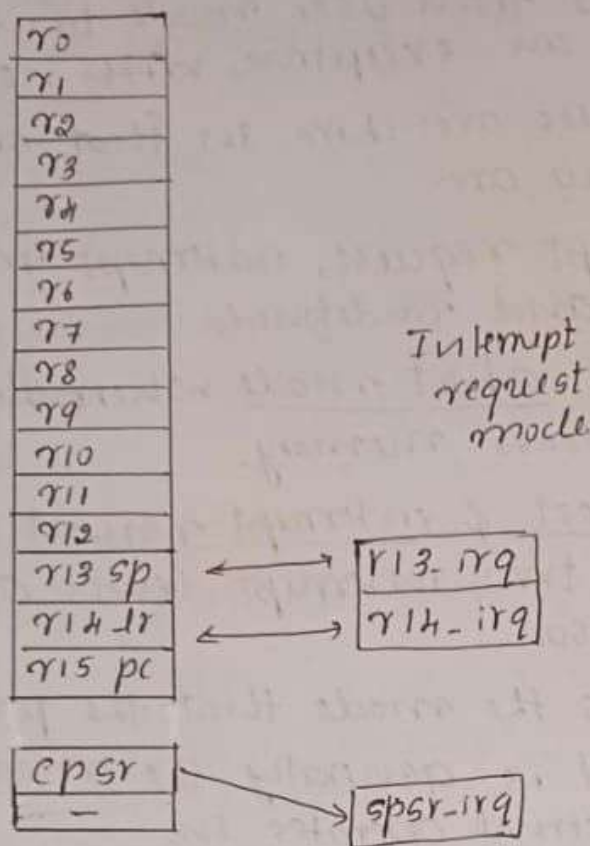 r0
r1
r2
r3
r4
r5
r6
r7
r8
r9
r10
r11
r12
r13 sp
r14 lr
r15 pc
cpsr
-
Interrupt
request
mode
r13-irq
r14-irq
spsr-irq